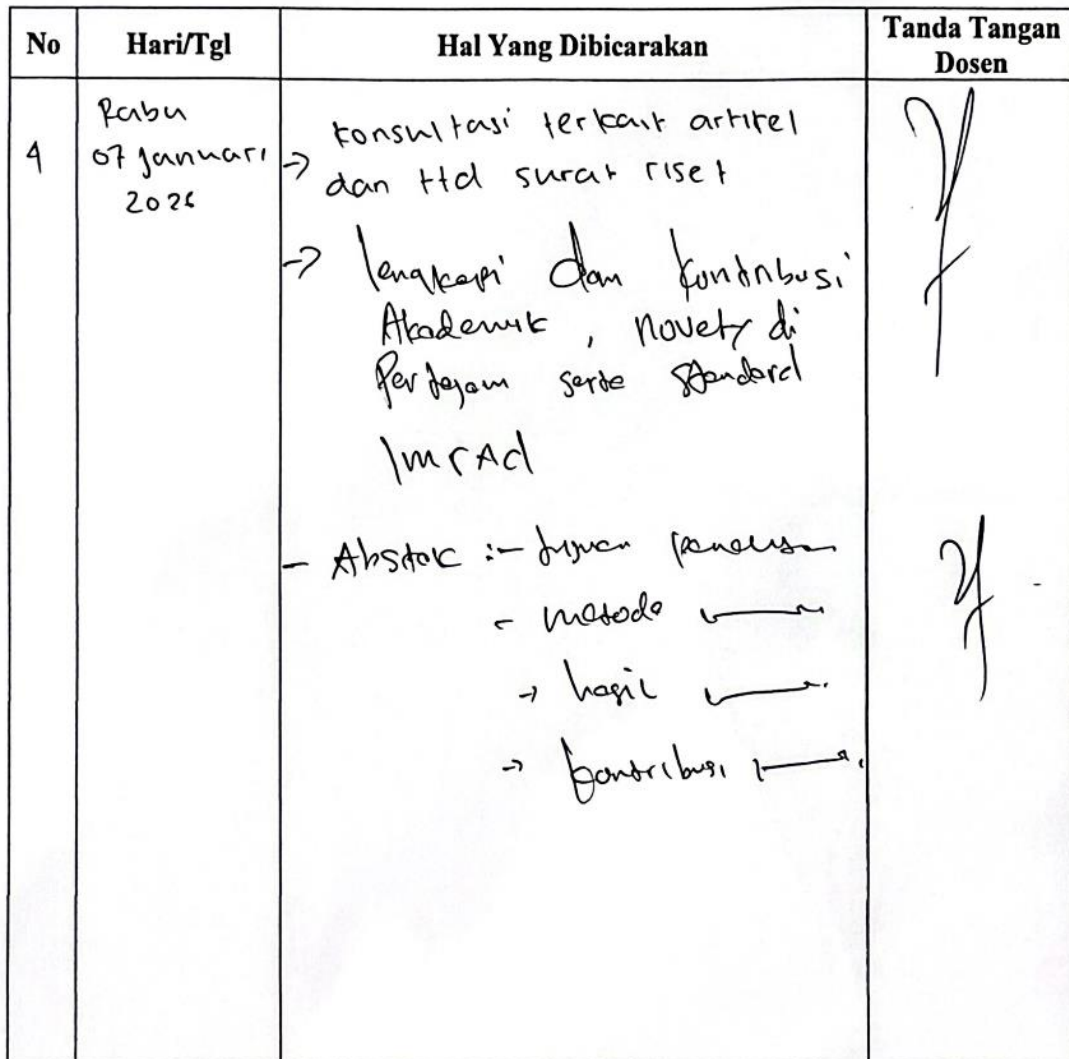 No
Hari/Tgl
Hal Yang Dibicarakan
Tanda Tangan
Dosen
4
Rabu
07 Januari
2026
→ konsultasi terkait artikel
dan ttd surat riset
→ lengkapi dan kontribusi
Akademik, Novelty di
Pertajam serta standard
Imrad
- Abstrak :- tujuan penelitian
- metode
→ hasil
→ kontribusi